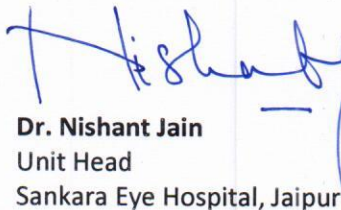 Nishant
Dr. Nishant Jain
Unit Head
Sankara Eye Hospital, Jaipur